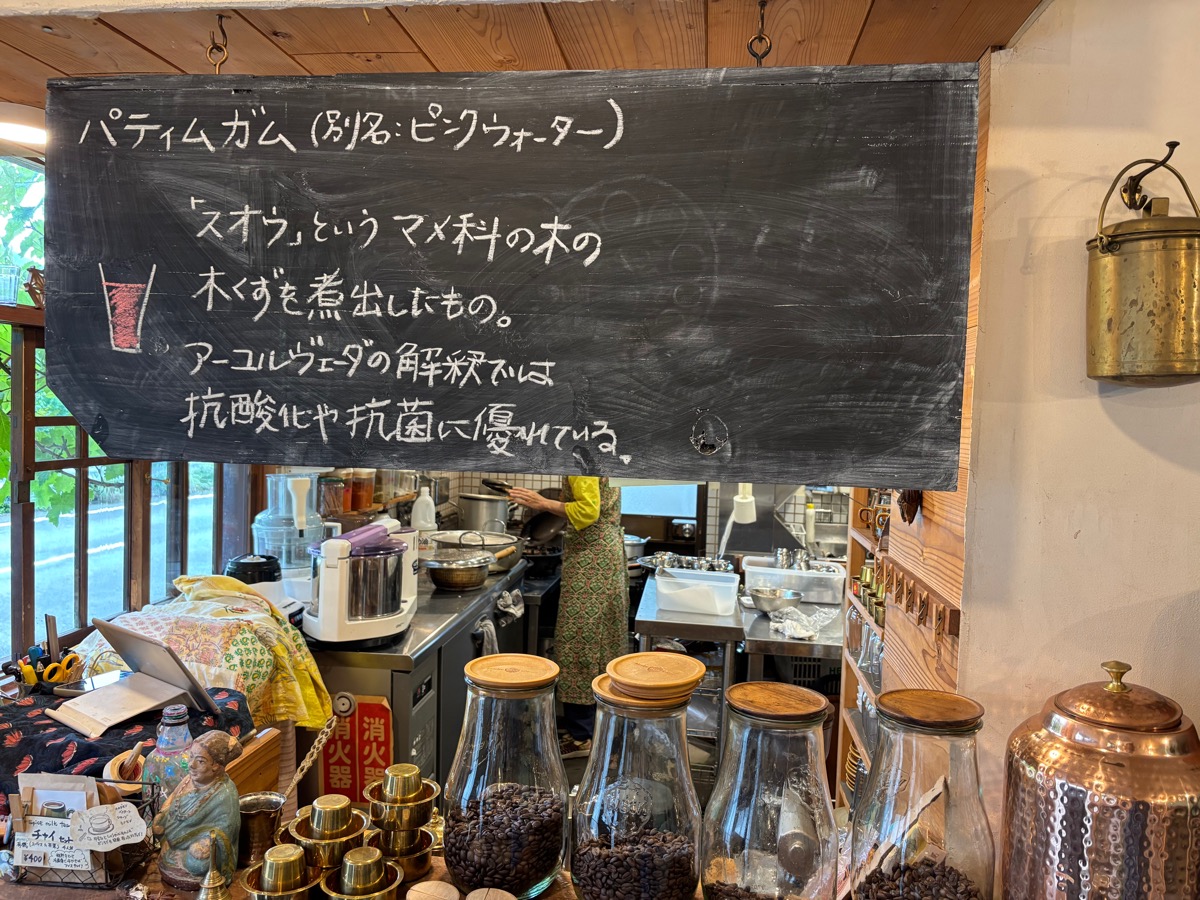 パティムガム(別名:ピンクウォーター)
「スオウ」という マメ科の木の
木くずを煮出したもの。
アーユルヴェーダの解釈では
抗酸化や抗菌に優れている。
消火器
消火器
spice milk tea
チャイ セット
¥400